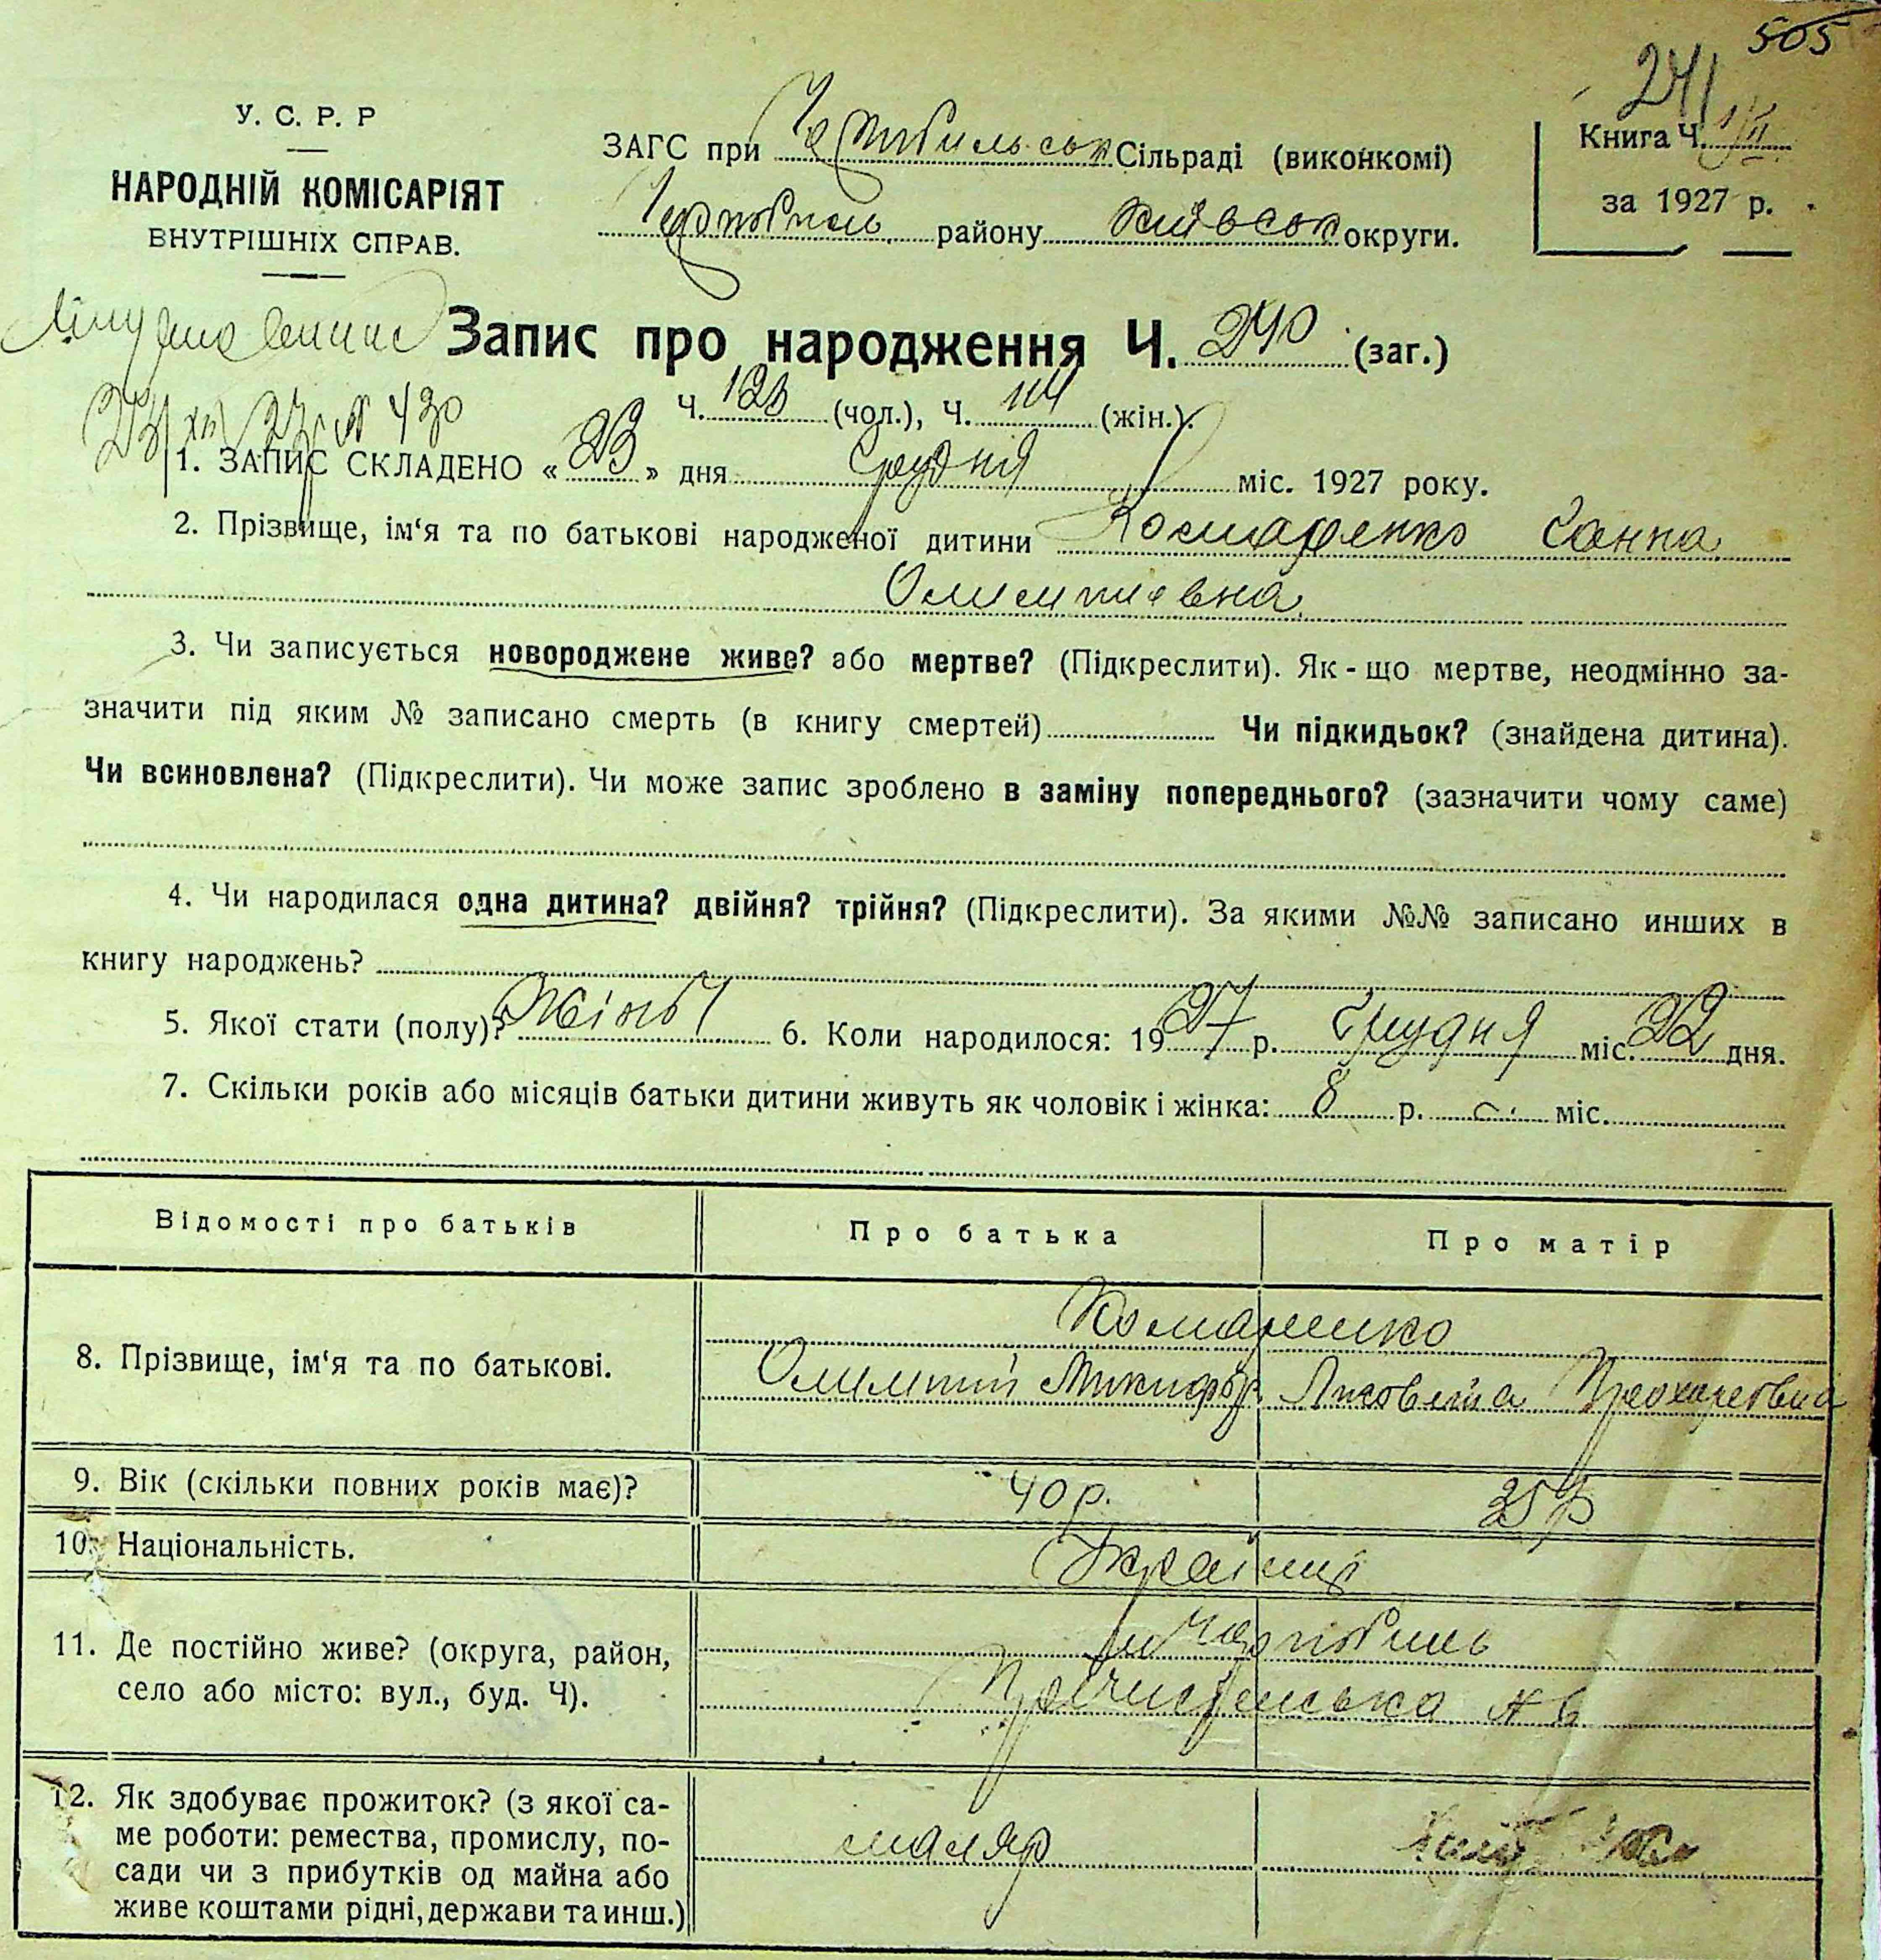 505
241
У. С. Р. Р
НАРОДНІЙ КОМІСАРІЯТ
ВНУТРІШНІХ СПРАВ.
ЗАГС при Чорнобильськ Сільраді (виконкомі)
Чорнобиль району Київськ округи.
Книга Ч.
за 1927 р.
Запис про народження Ч. 240 (заг.)
23/XII 27 р № 430
Ч. 123 (чол.), Ч. 114 (жін.).
1. ЗАПИС СКЛАДЕНО « 23 » дня Грудня міс. 1927 року.
2. Прізвище, ім‘я та по батькові народженої дитини Комаренко Ганна
Олимпиевна
3. Чи записується новороджене живе? або мертве? (Підкреслити). Як-що мертве, неодмінно за-
значити під яким № записано смерть (в книгу смертей) Чи підкидьок? (знайдена дитина).
Чи всиновлена? (Підкреслити). Чи може запис зроблено в заміну попереднього? (зазначити чому саме)
4. Чи народилася одна дитина? двійня? трійня? (Підкреслити). За якими №№ записано инших в
книгу народжень?
5. Якої стати (полу)? Жіноч 6. Коли народилося: 1927 р. Грудня міс. 22 дня.
7. Скільки років або місяців батьки дитини живуть як чоловік і жінка: 8 р. міс.
Відомості про батьків Про батька Про матір
8. Прізвище, ім‘я та по батькові.
Комаренко
Олимпій Микифор Лизовета Прохоровна
9. Вік (скільки повних років має)? 40 р. 25 р
10. Національність. Українці
11. Де постійно живе? (округа, район,
село або місто: вул., буд. Ч).
м Чорнобиль
Пречистенська № 6
12. Як здобуває прожиток? (з якої са-
ме роботи: ремества, промислу, по-
сади чи з прибутків од майна або
живе коштами рідні, держави та инш.)
маляр